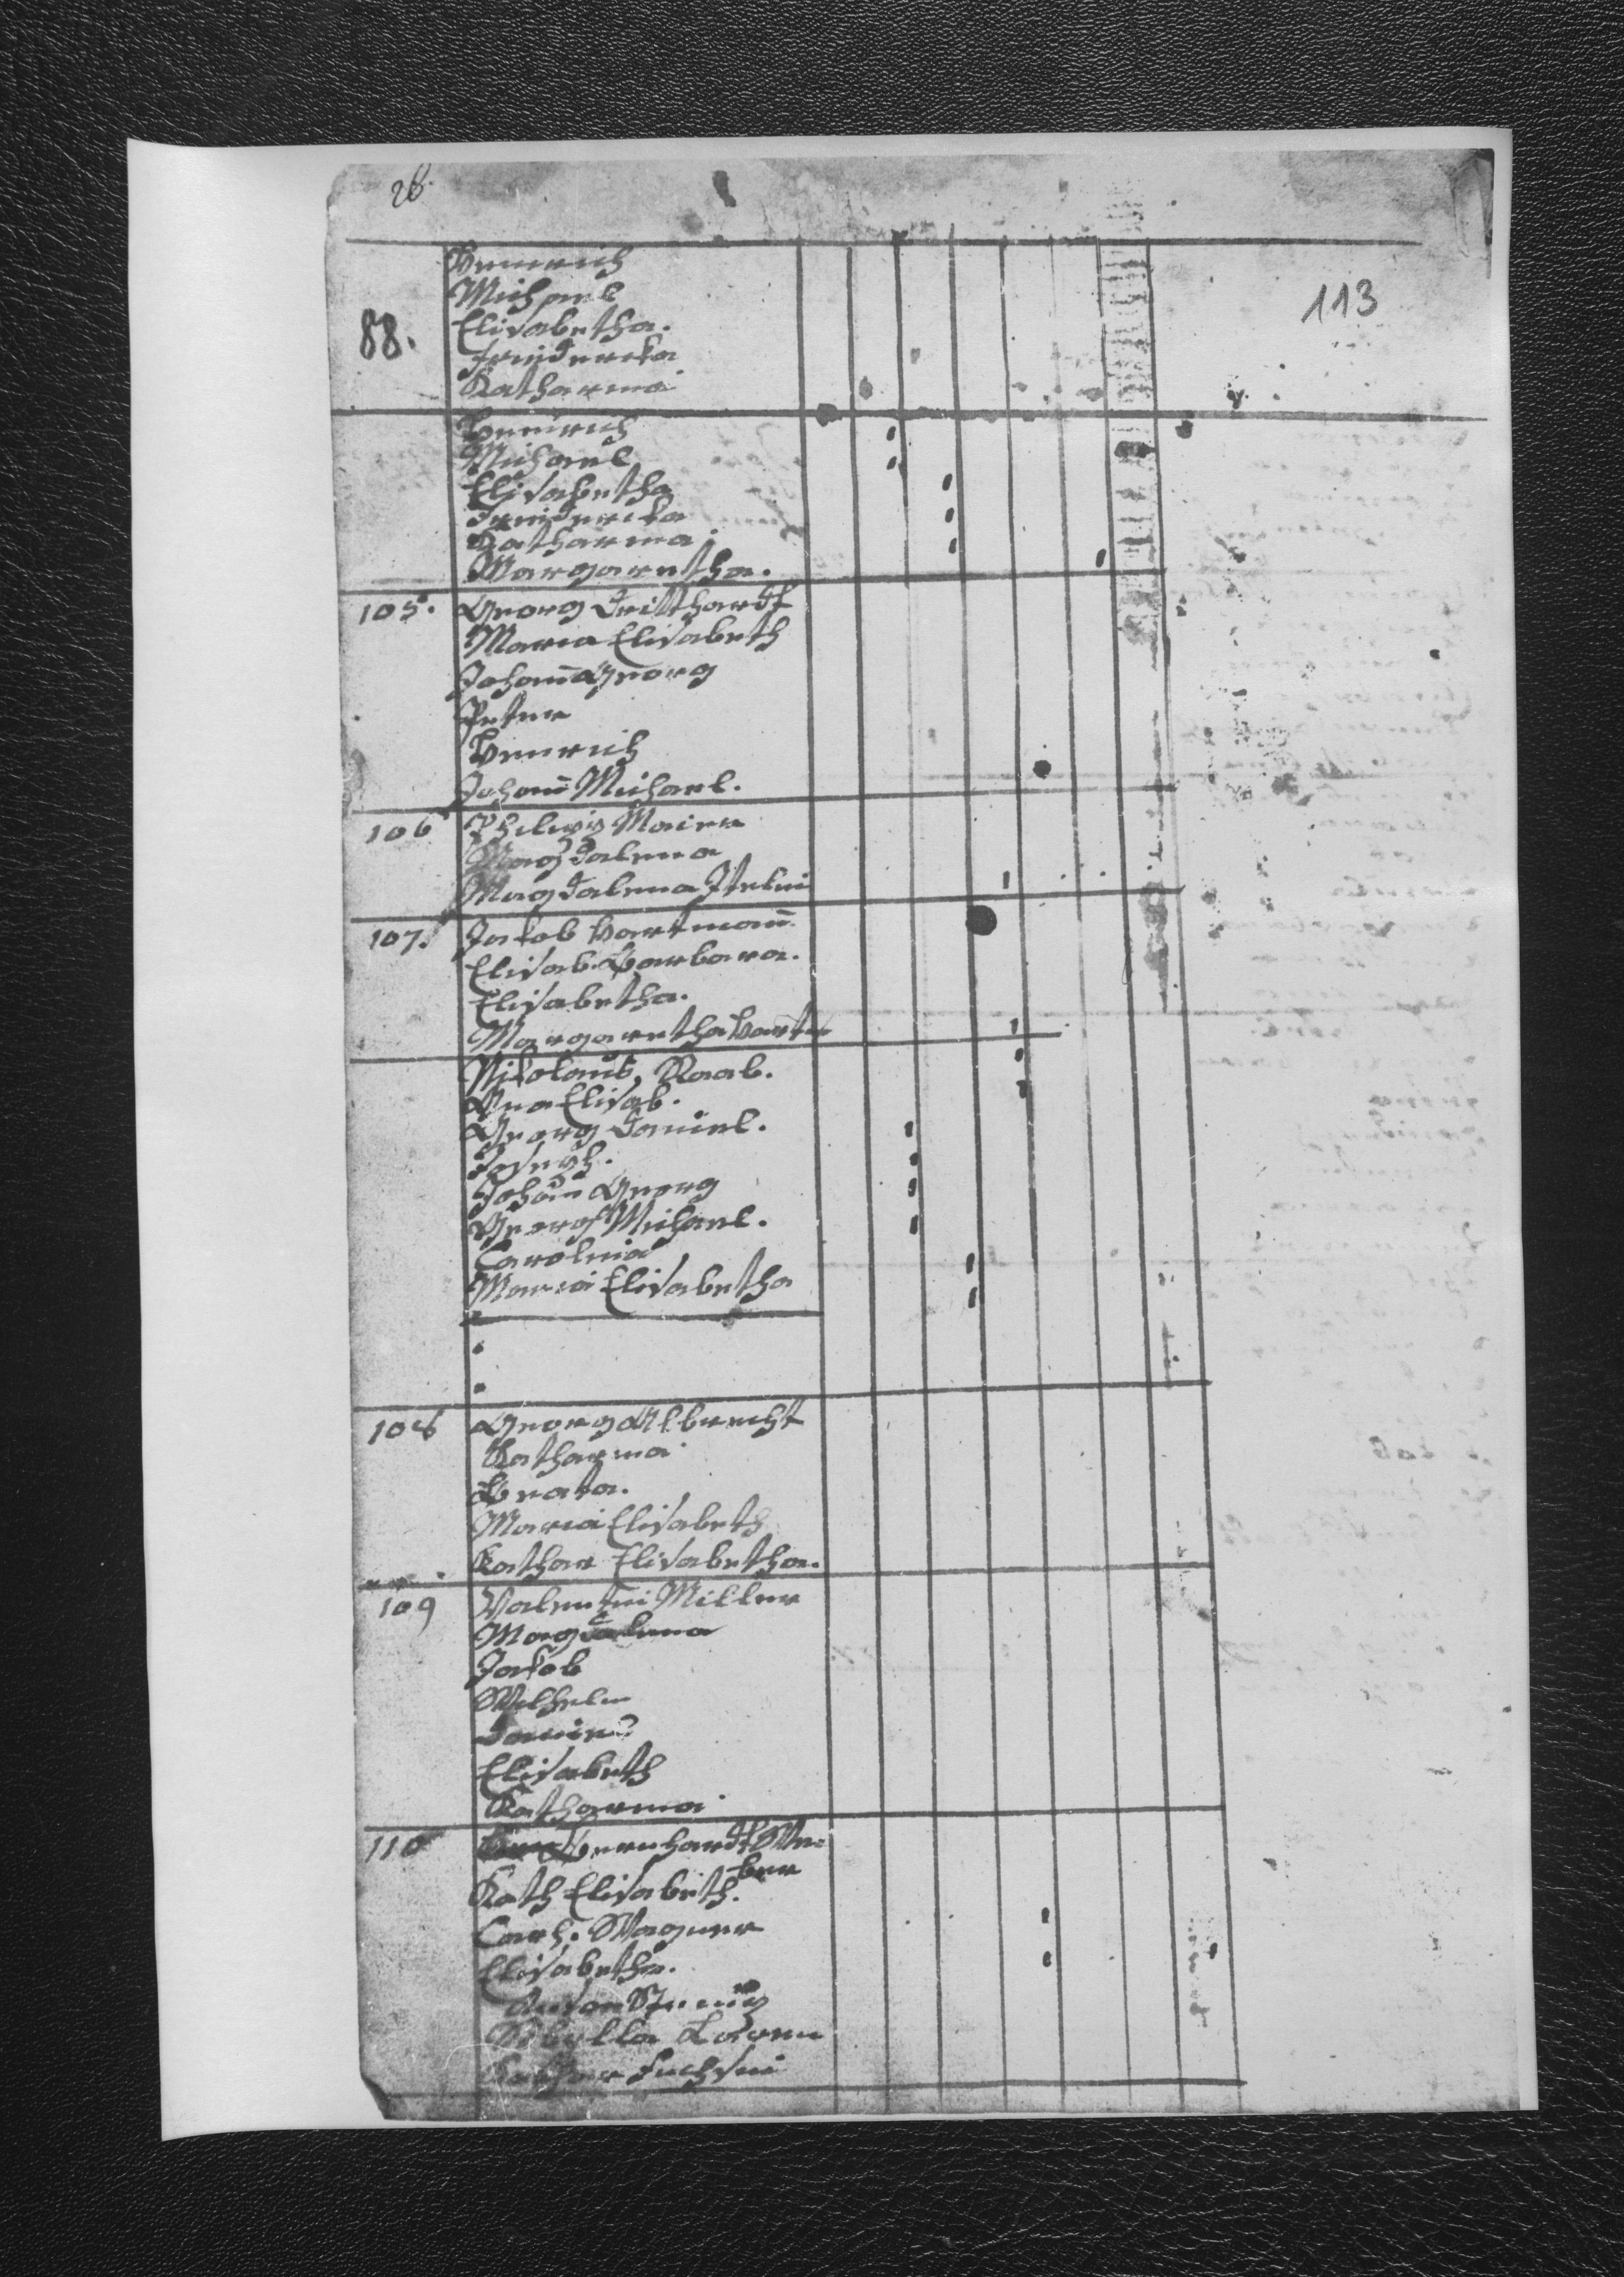 26.
113
Heinrich
Michael
88. Elisabetha.
Friedericka
Katharina
Heinrich
Michael
Elisabetha
Friedericka
Katharina
Margaretha.
105. Georg
Maria Elisabeth
Johann Georg
Peter
Heinrich
Johann Michael.
106 Maier
Magdalena
Magdalena
107. Jakob Hartmann
Elisab. Barbara.
Elisabetha.
Margaretha
Nikolaus, Raab.
Eva Elisab.
Georg Daniel.
Joseph.
Johann Georg
Georg Michael.
Carolina
Maria Elisabetha
108 Georg Albrecht
Katharina
Beata.
Maria Elisabeth
Kathar Elisabetha.
109 Valentin Miller
Magdalena
Jakob
Wilhelm
Daniel
Elisabeth
Katharina
110 Bernhardt We=
ber
Kath Elisabeth.
Wagner
Elisabetha.
Sibylla
Kathar Fuchsin